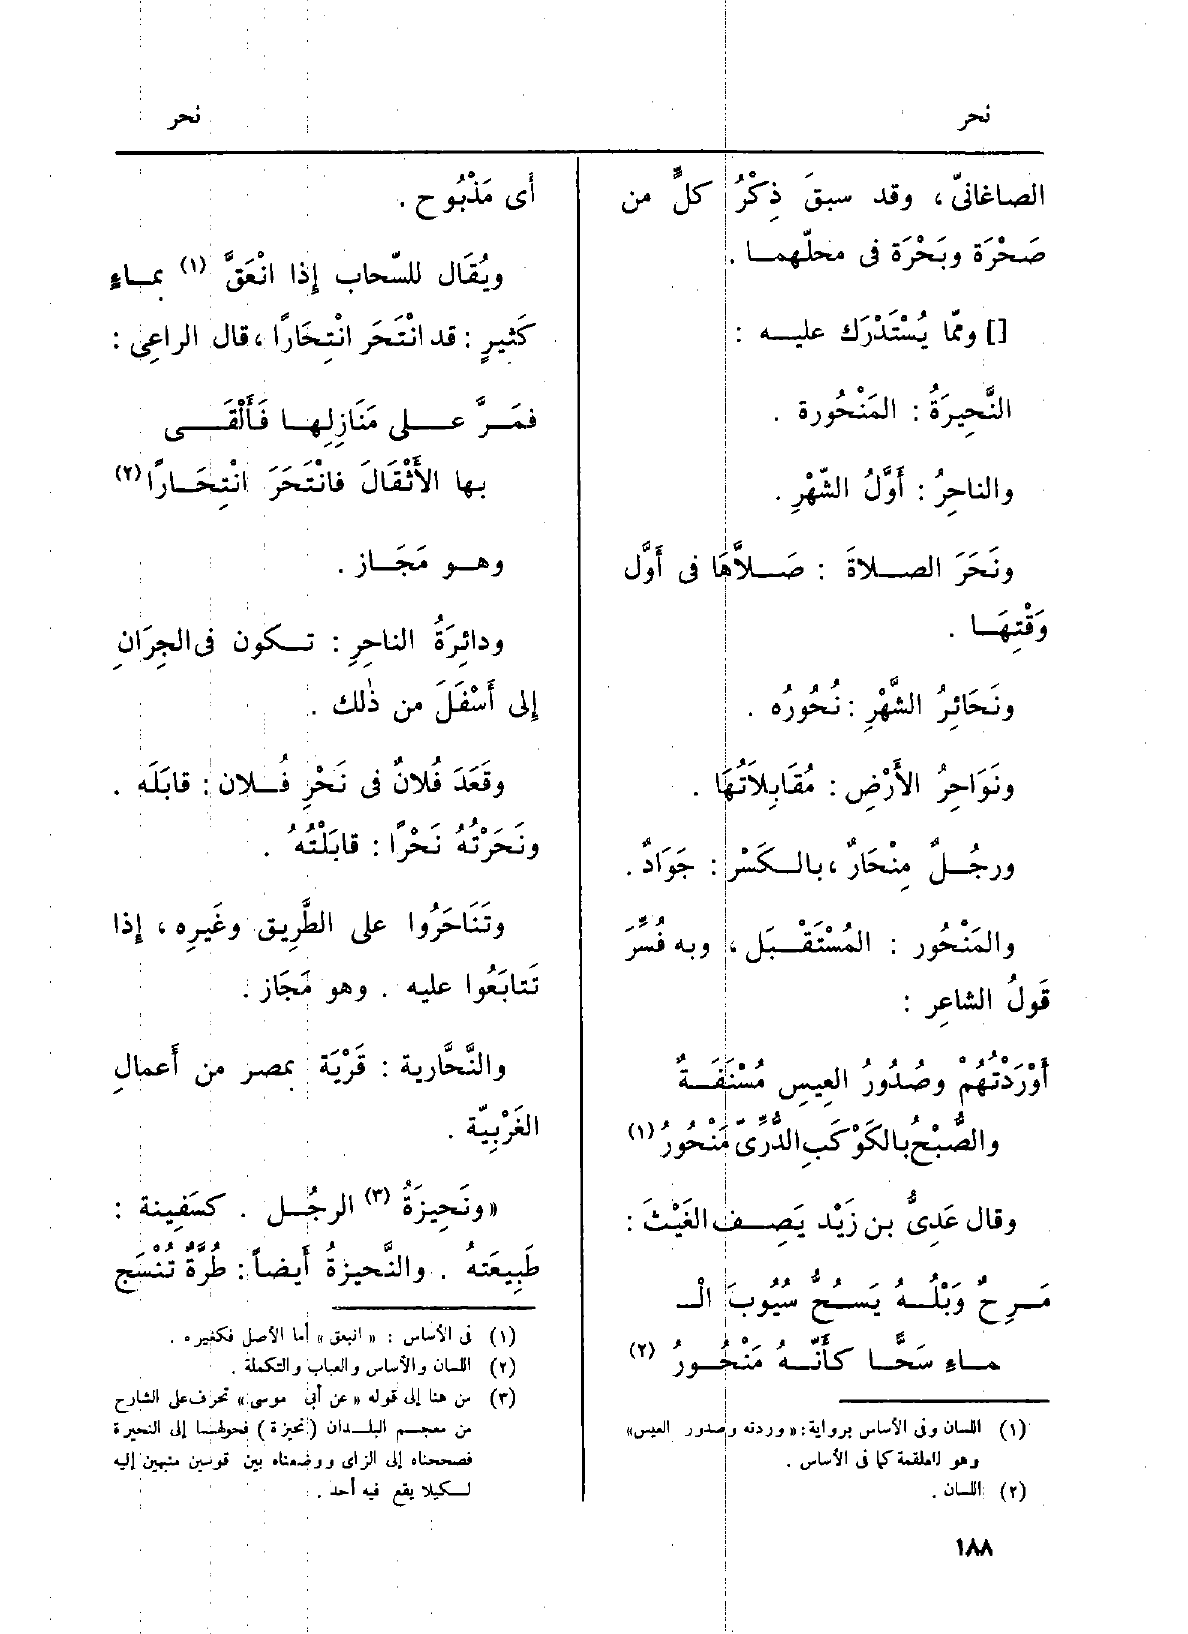 نحر
نحر
الصاغانىّ، وقد سبقَ ذِكْرُ كلٍّ من
صَحْرَة وبَحْرَة فى محلّهمـا .
[] وممّا يُسْتَدْرَك عليـه :
النَّحِيرَةُ : المَنْحُورة .
والناحِرُ : أَوَّلُ الشّهْرِ .
ونَحَرَ الصـلاةَ : صَـلاَّهَا فى أَوَّل
وَقْتِهَـا .
ونَحَائِرُ الشَّهْرِ : نُحُورُه .
ونَوَاحِرُ الأَرْضِ : مُقَابِلاَتُهَا .
ورجُـلٌ مِنْحَارٌ، بالـكَسْر : جَوَادٌ .
والمَنْحُور : المُسْتَقْـبَل ، وبه فُسِّرَ
قَولُ الشاعِر :
أَوْرَدْتُهُمْ وصُدُورُ العِيسِ مُسْنَفَـةٌ
والصُّبْحُ بالكَوْكَبِ الدُّرِّىِّ مَنْحُورُ (١)
وقال عَدِىُّ بن زَيْد يَصِـف الغَيْثَ :
مَـرِحٌ وَبْلُـهُ يَسـحُّ سُيُوبَ الْـ
ـمـاءِ سَحًّـا كأَنّـهُ مَنْحُـورُ (٢)
(١) اللسان وفى الأساس برواية : « وردته وصدور العيس »
وهو لعلقمة كما فى الأساس .
(٢) اللسان .
أَى مَذْبُوح .
ويُقَال للسّحاب إِذا انْعَقَّ (١) بمـاءٍ
كَثِيرٍ : قد انْتَحَر انْتِحَارًا ، قال الراعِى :
فمَـرَّ عـلى مَنَازِلِهـا فَأَلْقَـى
بها الأَثْقَالَ فانْتَحَرَ انْتِحَـارًا (٢)
وهـو مَجَـاز .
ودائِرَةُ الناحِرِ : تـكون فى الجِرَانِ
إِلى أَسْفَلَ من ذٰلك .
وقَعَدَ فُلانٌ فى نَحْرِ فُـلان : قابَلَه .
ونَحَرْتُهُ نَحْرًا : قابَلْتُهُ .
وتَنَاحَرُوا على الطَّرِيق وغَيرِه ، إِذا
تَتابَعُوا عليه . وهو مَجَاز .
والنَّحّارية : قَرْيَة بمصر من أَعمالِ
الغَرْبِيّة .
« ونَحِيزَةُ (٣) الرجُـل . كسَفِينة :
طَبِيعَتهُ . والنَّحيزةُ أَيضاً : طُرَّةٌ تُنْسَج
(١) فى الأساس : « انبعق » أما الأصل فكغيره .
(٢) اللسان والأساس والعباب والتكملة .
(٣) من هنا إلى قوله « عن أبى موسى » تحرف على الشارح
من معجـم البلـدان ( نحيزة ) فحولهـا إلى النحيرة
فصححناه إلى الزاى ووضعناه بين قوسين منبهين إليه
لـكيلا يقع فيه أحد .
١٨٨